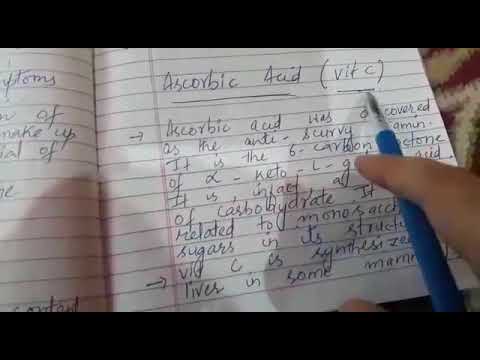 ptoms
Ascorbic Acid (vit c)
n of
make up
ial of
→ Ascorbic acid was covered
as the anti-scurvy amin.
It is the 6-carbon ctone
of α-keto-L-g acid.
It is, infact, a
of carbohydrate. It
related to monosacc
sugars in its structu
vit c is synthesize
→ lives in some mamm
content